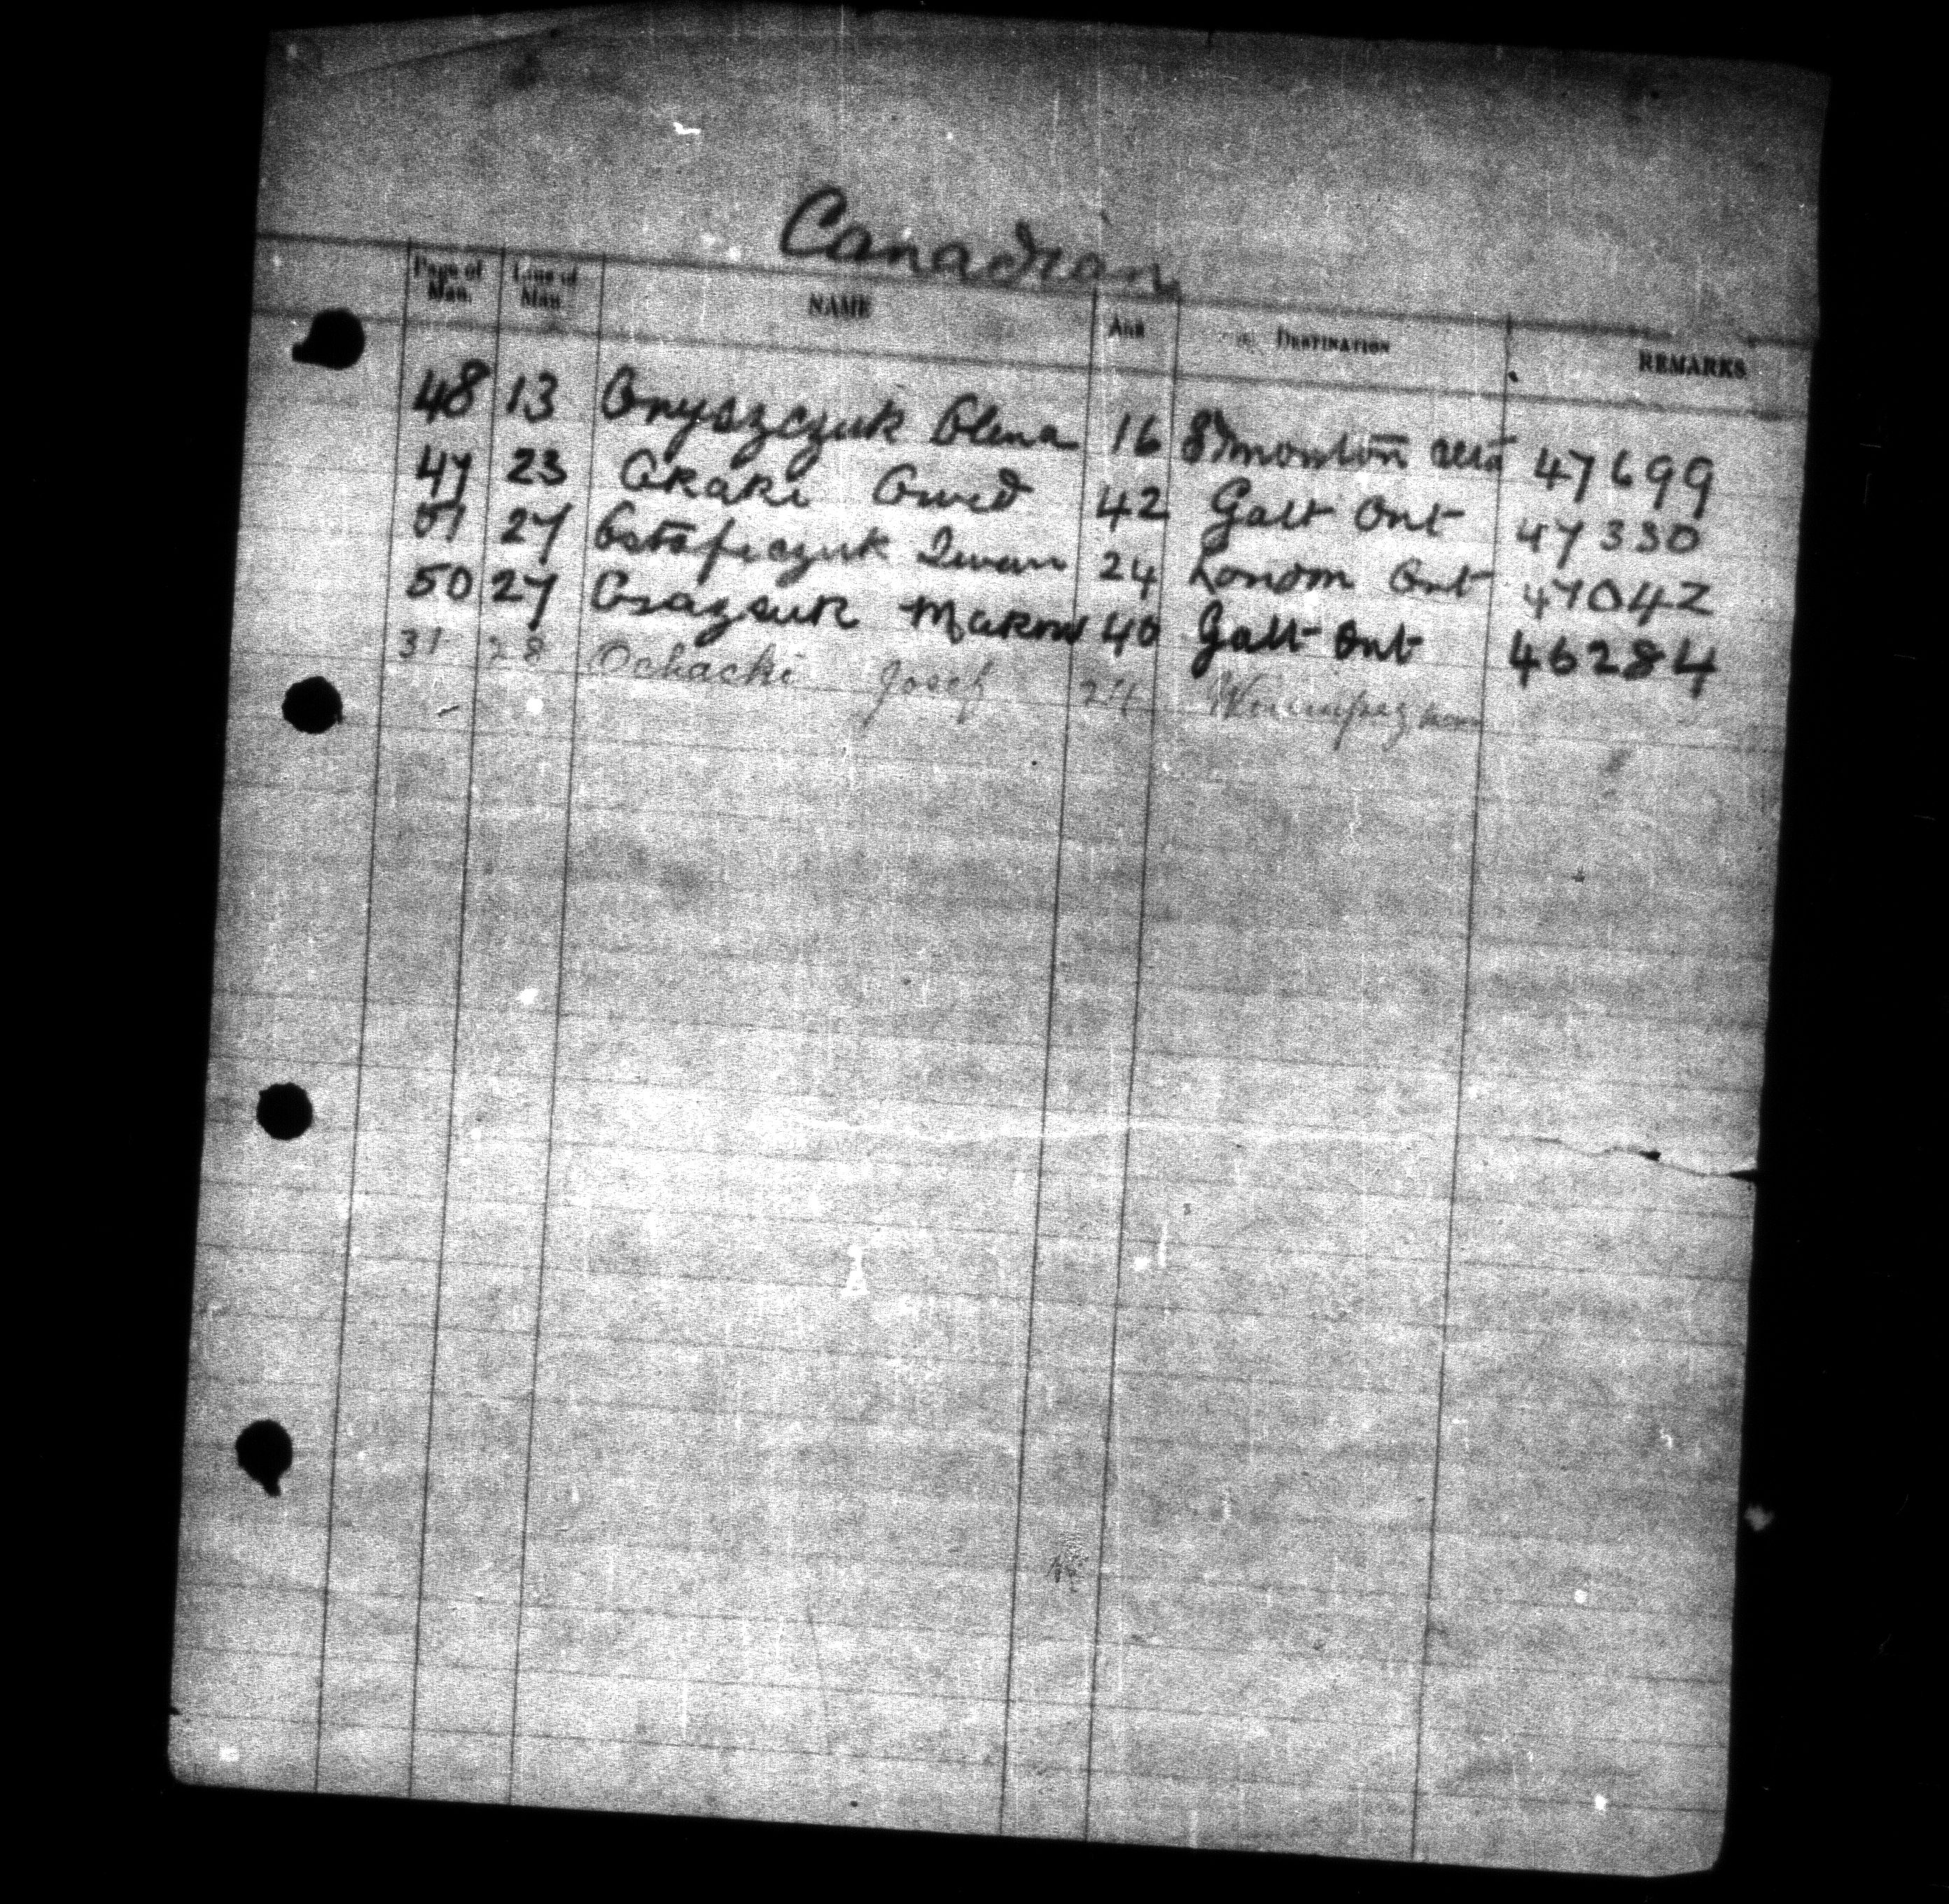 Canadian
Page of Man. Line of Man. NAME AGE DESTINATION REMARKS
48 13 Onyszczuk Olena 16 Edmonton Alta 47699
47 23 Okaki Owed 42 Galt Ont 47330
51 27 Ostaficzuk Iwan 24 London Ont 47042
50 27 Osazsuk 40 Galt Ont 46284
31 28 Ochacki Josef 24 Winnipeg Man